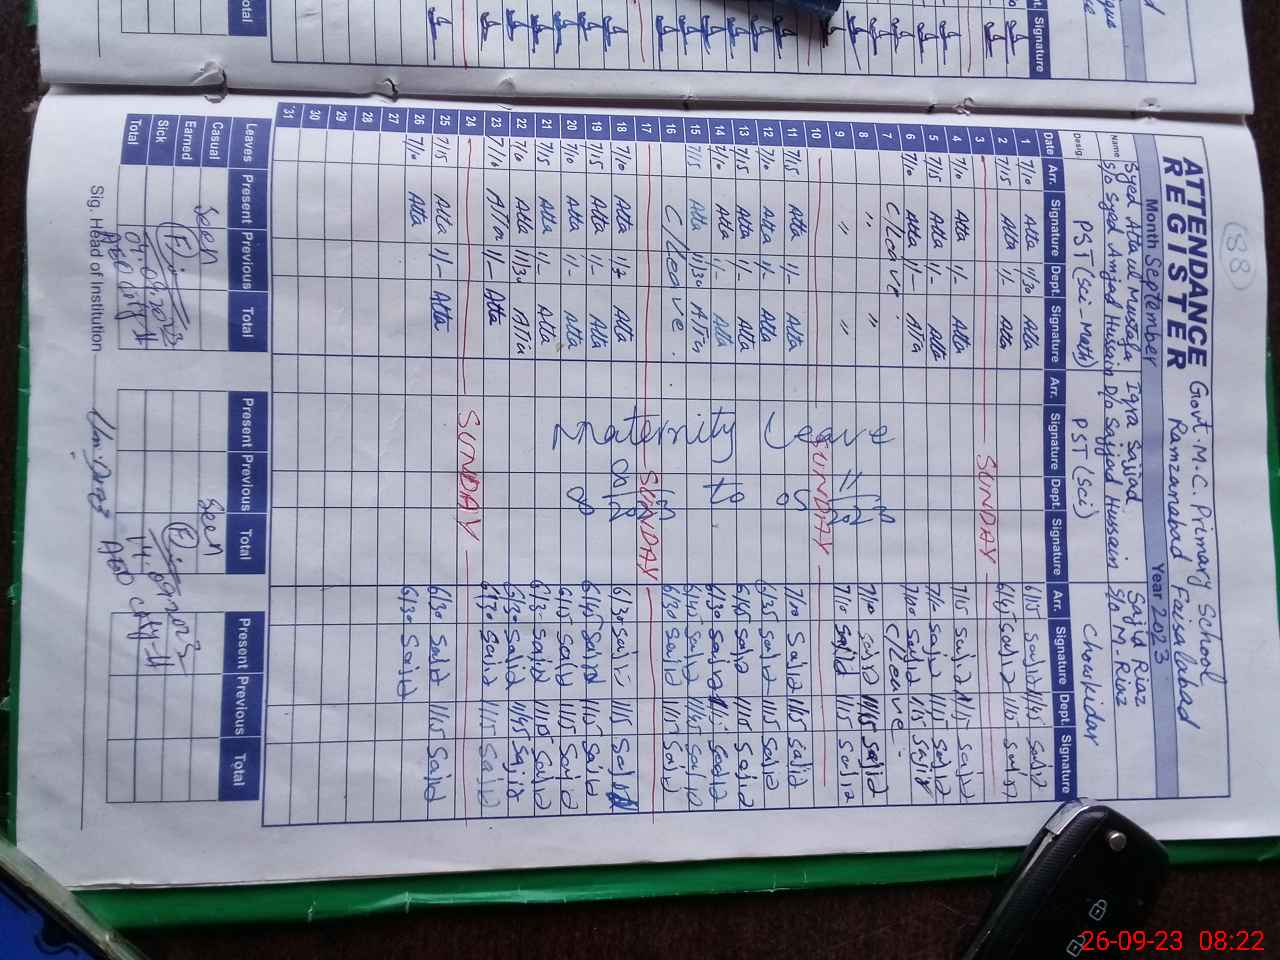 88
ATTENDANCE REGISTER
Govt. M.C. Primary School
Ramzanabad Faisalabad
Month September Year 2023
Name Syed Ata ul Mustafa Iqra Sajjad Sajid Riaz
S/o Syed Amjad Hussain D/o Sajjad Hussain S/o M. Riaz
Desig. PST (Sci-Math) PST (Sci) Chowkidar
Date Arr. Signature Dept. Signature Arr. Signature Dept. Signature Arr. Signature Dept. Signature
1 7/10 Atta 11/30 Atta 6/15 Sajid 11/45 Sajid
2 7/15 Atta 1/- Atta 6/45 Sajid 11/15 Sajid
3 SUNDAY
4 7/10 Atta 1/- Atta 7/15 Sajid 11/15 Sajid
5 7/15 Atta 1/- Atta 7/10 Sajid 11/15 Sajid
6 7/10 Atta 1/- Atta 7/10 Sajid 1/15 Sajid
7 C/Leave C/Leave
8 " " 7/10 Sajid 11/15 Sajid
9 " " 7/10 Sajid 11/15 Sajid
10 SUNDAY
11 7/15 Atta 1/- Atta 7/10 Sajid 11/15 Sajid
12 7/10 Atta 1/- Atta 6/35 Sajid 11/15 Sajid
13 7/15 Atta 1/- Atta 6/45 Sajid 11/15 Sajid
14 7/10 Atta 1/- Atta 6/30 Sajid Sajid
15 7/15 Atta 11/30 Atta 6/45 Sajid 11/45 Sajid
16 C/Leave. 6/30 Sajid 11/15 Sajid
17 SUNDAY
18 7/10 Atta Atta 6/30 Sajid 11/15 Sajid
19 7/15 Atta 1/- Atta 6/45 Sajid 11/15 Sajid
20 7/10 Atta 1/- Atta 6/15 Sajid 11/15 Sajid
21 7/15 Atta 1/- Atta Sajid 11/10 Sajid
22 7/10 Atta 11/30 Atta 6/30 Sajid 11/45 Sajid
23 7/10 Atta 1/- Atta 6/30 Sajid 11/15 Sajid
24 SUNDAY
25 7/15 Atta 1/- Atta 6/30 Sajid 11/15 Sajid
26 7/10 Atta 6/30 Sajid
27
28
29
30
31
Maternity Leave
to
Leaves Present Previous Total Present Previous Total Present Previous Total
Casual Seen Seen
Earned
Sick
Total
AEO City-II
14.09.2023
AEO City-II
Sig. Head of Institution
Signature
Total
26-09-23 08:22